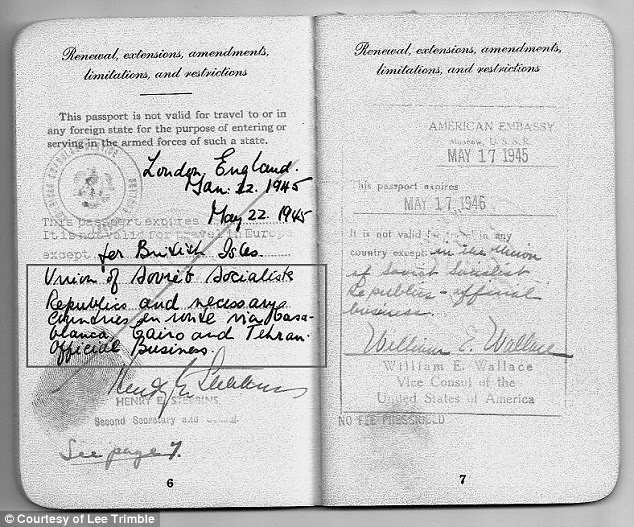 Renewal, extensions, amendments,
limitations, and restrictions
This passport is not valid for travel to or in
any foreign state for the purpose of entering or
serving in the armed forces of such a state.
London England.
Jan. 22. 1945
This passport expires May 22. 1945
It is not valid for travel in Europe
except for British Isles.
Union of Soviet Socialist
Republics and necessary
countries en route via Casa-
blanca, Cairo and Tehran.
Official Business.
HENRY E. STEBBINS
Second Secretary and Consul.
See page 7.
6
Renewal, extensions, amendments,
limitations, and restrictions
AMERICAN EMBASSY
Moscow, U.S.S.R.
MAY 17 1945
This passport expires
MAY 17, 1946
It is not valid for travel in any
country except in the Union
of Soviet Socialist
Republics - official
business.
William E. Wallace
William E. Wallace
Vice Consul of the
United States of America
NO FEE PRESCRIBED
7
© Courtesy of Lee Trimble